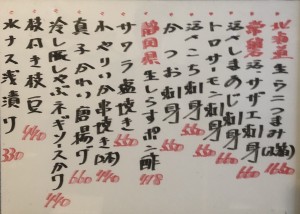 北海道 生うにつまみ(2釜) 1600
常磐 活サザエ刺身 660
活〆しまあじ刺身 660
トロサーモン刺身 550
活〆こち刺身 660
かつお刺身 550
静岡県 生しらすポン酢 418
サワラ塩焼き 660
水やりいか串焼き(2本) 440
真子かれい唐揚げ 660
冷し豚しゃぶネギソースがけ 440
枝付き枝豆 440
水ナス浅漬け 330